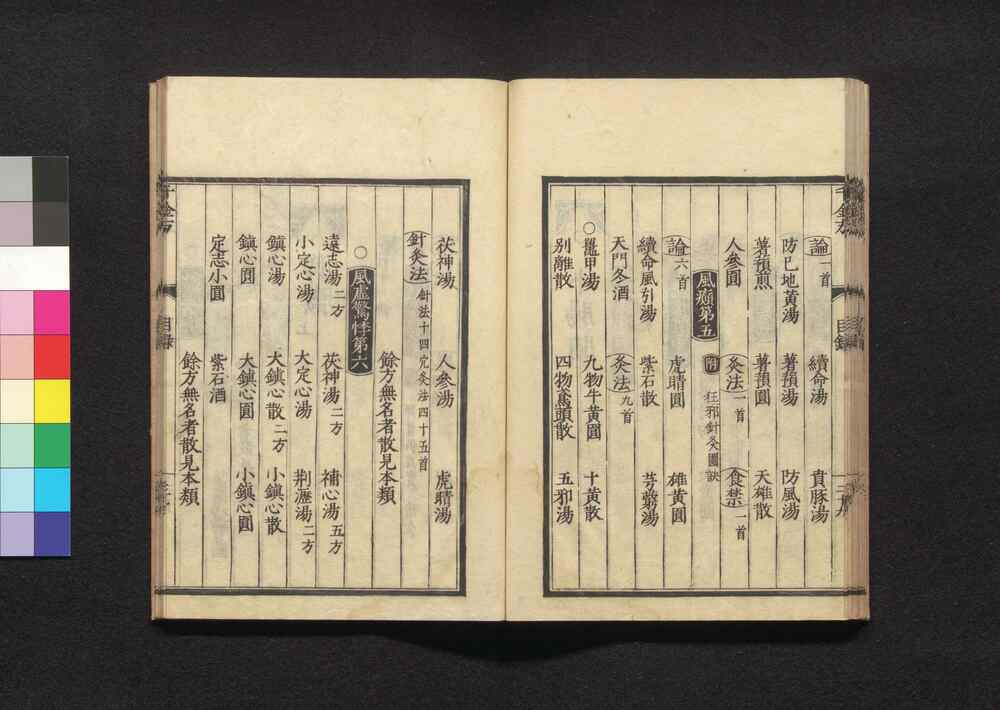 論一首 續命湯 賁豚湯
防已地黃湯 薯蕷湯 防風湯
薯蕷煎 薯蕷圓 天雄散
人參圓 灸法一首 食禁一首
風癲第五 附 狂邪針灸圖訣
論六首 虎睛圓 雄黃圓
續命風引湯 紫石散 芎藭湯
天門冬酒 灸法九首
○鼉甲湯 九物牛黃圓 十黃散
別離散 四物鳶頭散 五邪湯
茯神湯 人參湯 虎睛湯
針灸法 針法十四穴灸法四十五首
餘方無名者散見本類
○風虛驚悸第六
遠志湯二方 茯神湯二方 補心湯五方
小定心湯 大定心湯 荆瀝湯二方
鎮心湯 大鎮心散二方 小鎮心散
鎮心圓 大鎮心圓 小鎮心圓
定志小圓 紫石酒
餘方無名者散見本類
千金方 目錄